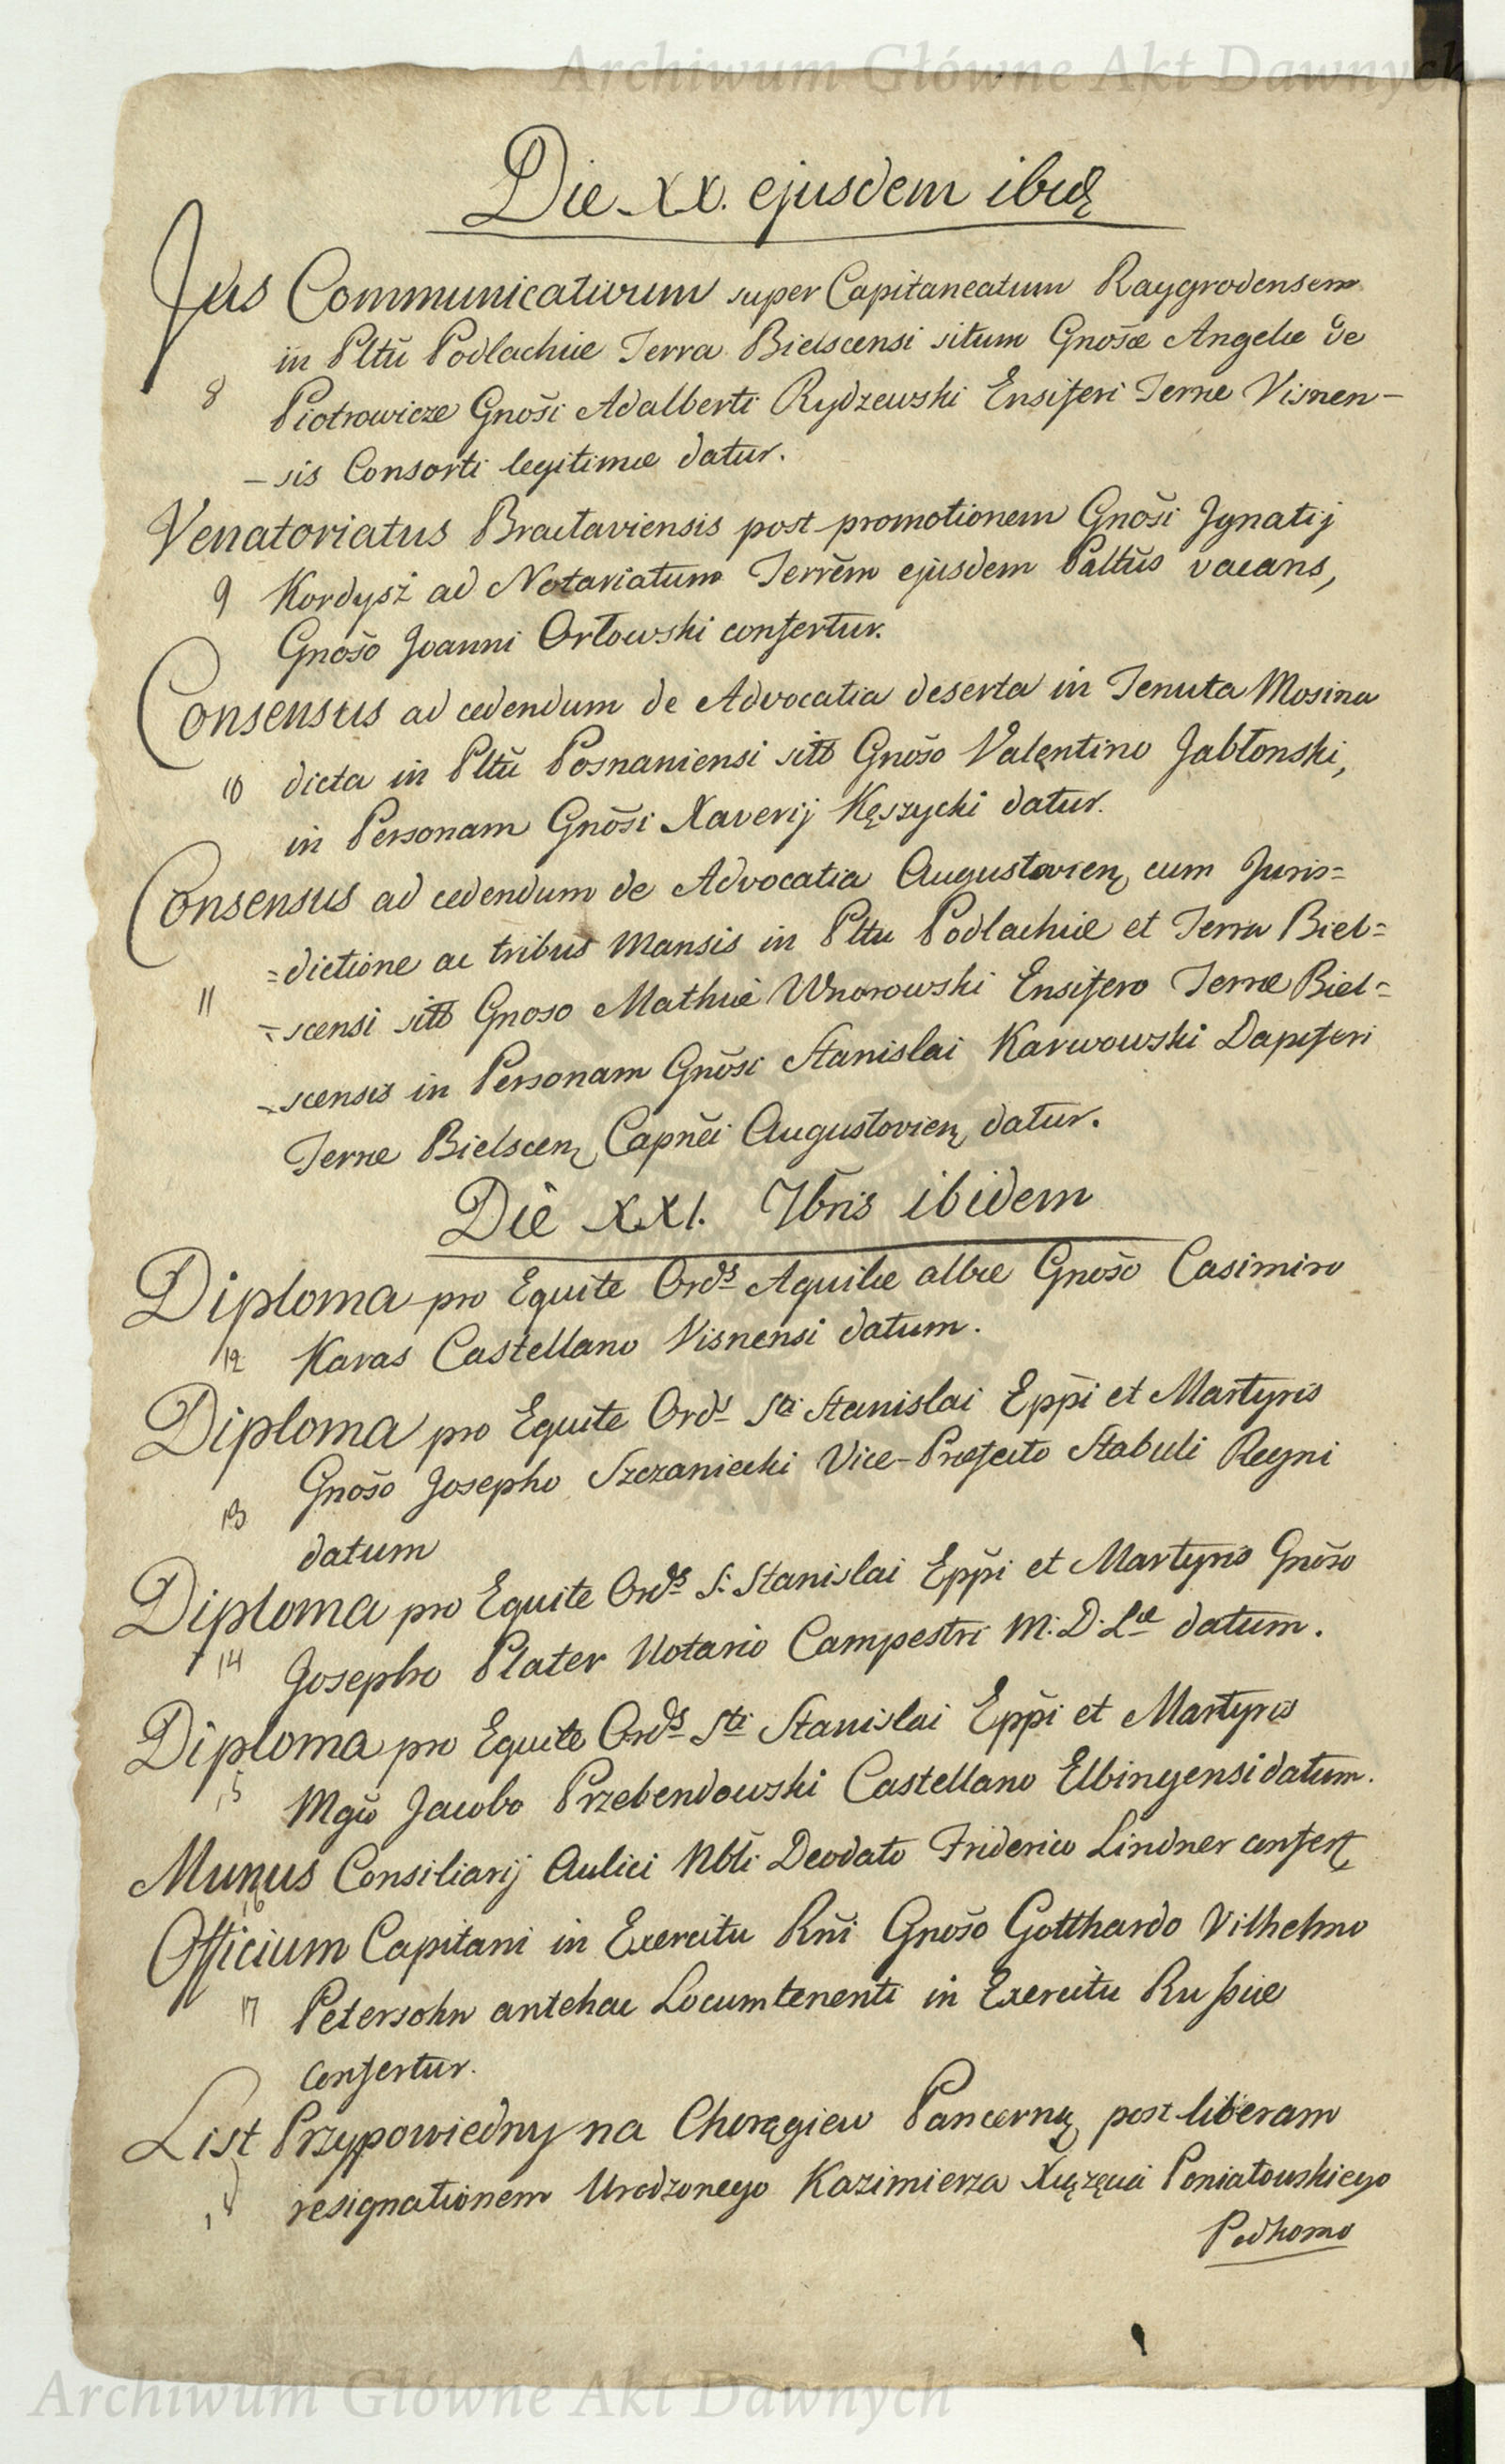 Archiwum Główne Akt Dawnych
Die XX. ejusdem ibidę
Jus Communicativum super Capitaneatum Raygrodensem
in Pltũ Podlachiæ Terra Bielscensi situm Gnõsæ Angelæ de
8 Piotrowicze Gnõsi Adalberti Rydzewski Ensiferi Terræ Visnen-
-sis Consorti legitimæ datur.
Venatoriatus Braclaviensis post promotionem Gnõsi Jgnatij
9 Kordysz ad Notariatum Terrẽm ejusdem Paltũs vacans,
Gnõso Joanni Orłowski confertur.
Consensus ad cedendum de Advocatia deserta in Tenuta Mosina
10 dicta in Pltũ Posnaniensi sitt Gnõso Valentino Jabłonski,
in Personam Gnõsi Xaverij Kęszycki datur.
Consensus ad cedendum de Advocatia Augustovienę cum Juris=
=dictione ac tribus Mansis in Pltu Podlachiæ et Terra Biel=
11 =scensi sitt Gnoso Mathiæ Wnorowski Ensifero Terræ Biel=
=scensis in Personam Gnõsi Stanislai Karwowski Dapiferi
Terræ Bielscenę Capnẽi Augustovienę datur.
Die XXI. 7bris ibidem
Diploma pro Equite Ords Aquilæ albæ Gnõso Casimiro
12 Karas Castellano Visnensi datum.
Diploma pro Equite Ords Sti Stanislai Eppĩ et Martyris
13 Gnõso Josepho Szczaniecki Vice-Præfecto Stabuli Regni
datum
Diploma pro Equite Ords S. Stanislai Eppĩ et Martyris Gnõso
14 Josepho Plater Notario Campestri M. D. Læ datum.
Diploma pro Equite Ords Sti Stanislai Eppĩ et Martyris
15 Mgco Jacobo Przebendowski Castellano Elbingensi datum.
Munus Consiliarij Aulici Nbli Deodato Friderico Lindner confertę
16
Officium Capitani in Exercitu Rñi Gnõso Gotthardo Vilhelmo
17 Petersohn antehac Locumtenenti in Exercitu Russiæ
confertur.
List Przypowiedny na Chorągiew Pancerną post liberam
18 resignationem Urodzonego Kazimierza Xiążęcia Poniatowskiego
Podkomo
Archiwum Główne Akt Dawnych